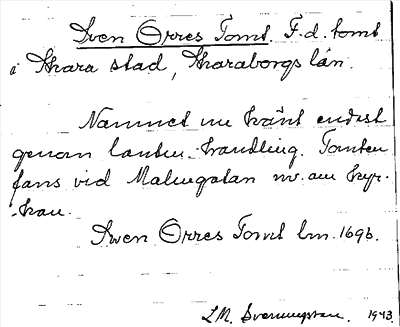 Sven Orres Tomt. F.d. tomt
i Skara stad, Skaraborgs län.
Namnet nu känt endast
genom lantm.-handling. Tomten
fans vid Malmgatan nv. om kyr-
-kan.
Swen Orres Tomt lm. 1696.
1943.